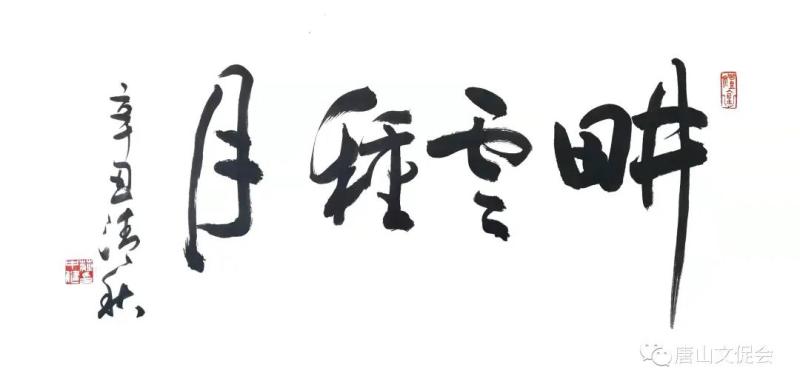 畊雲種月
辛丑清秋
唐山文促会